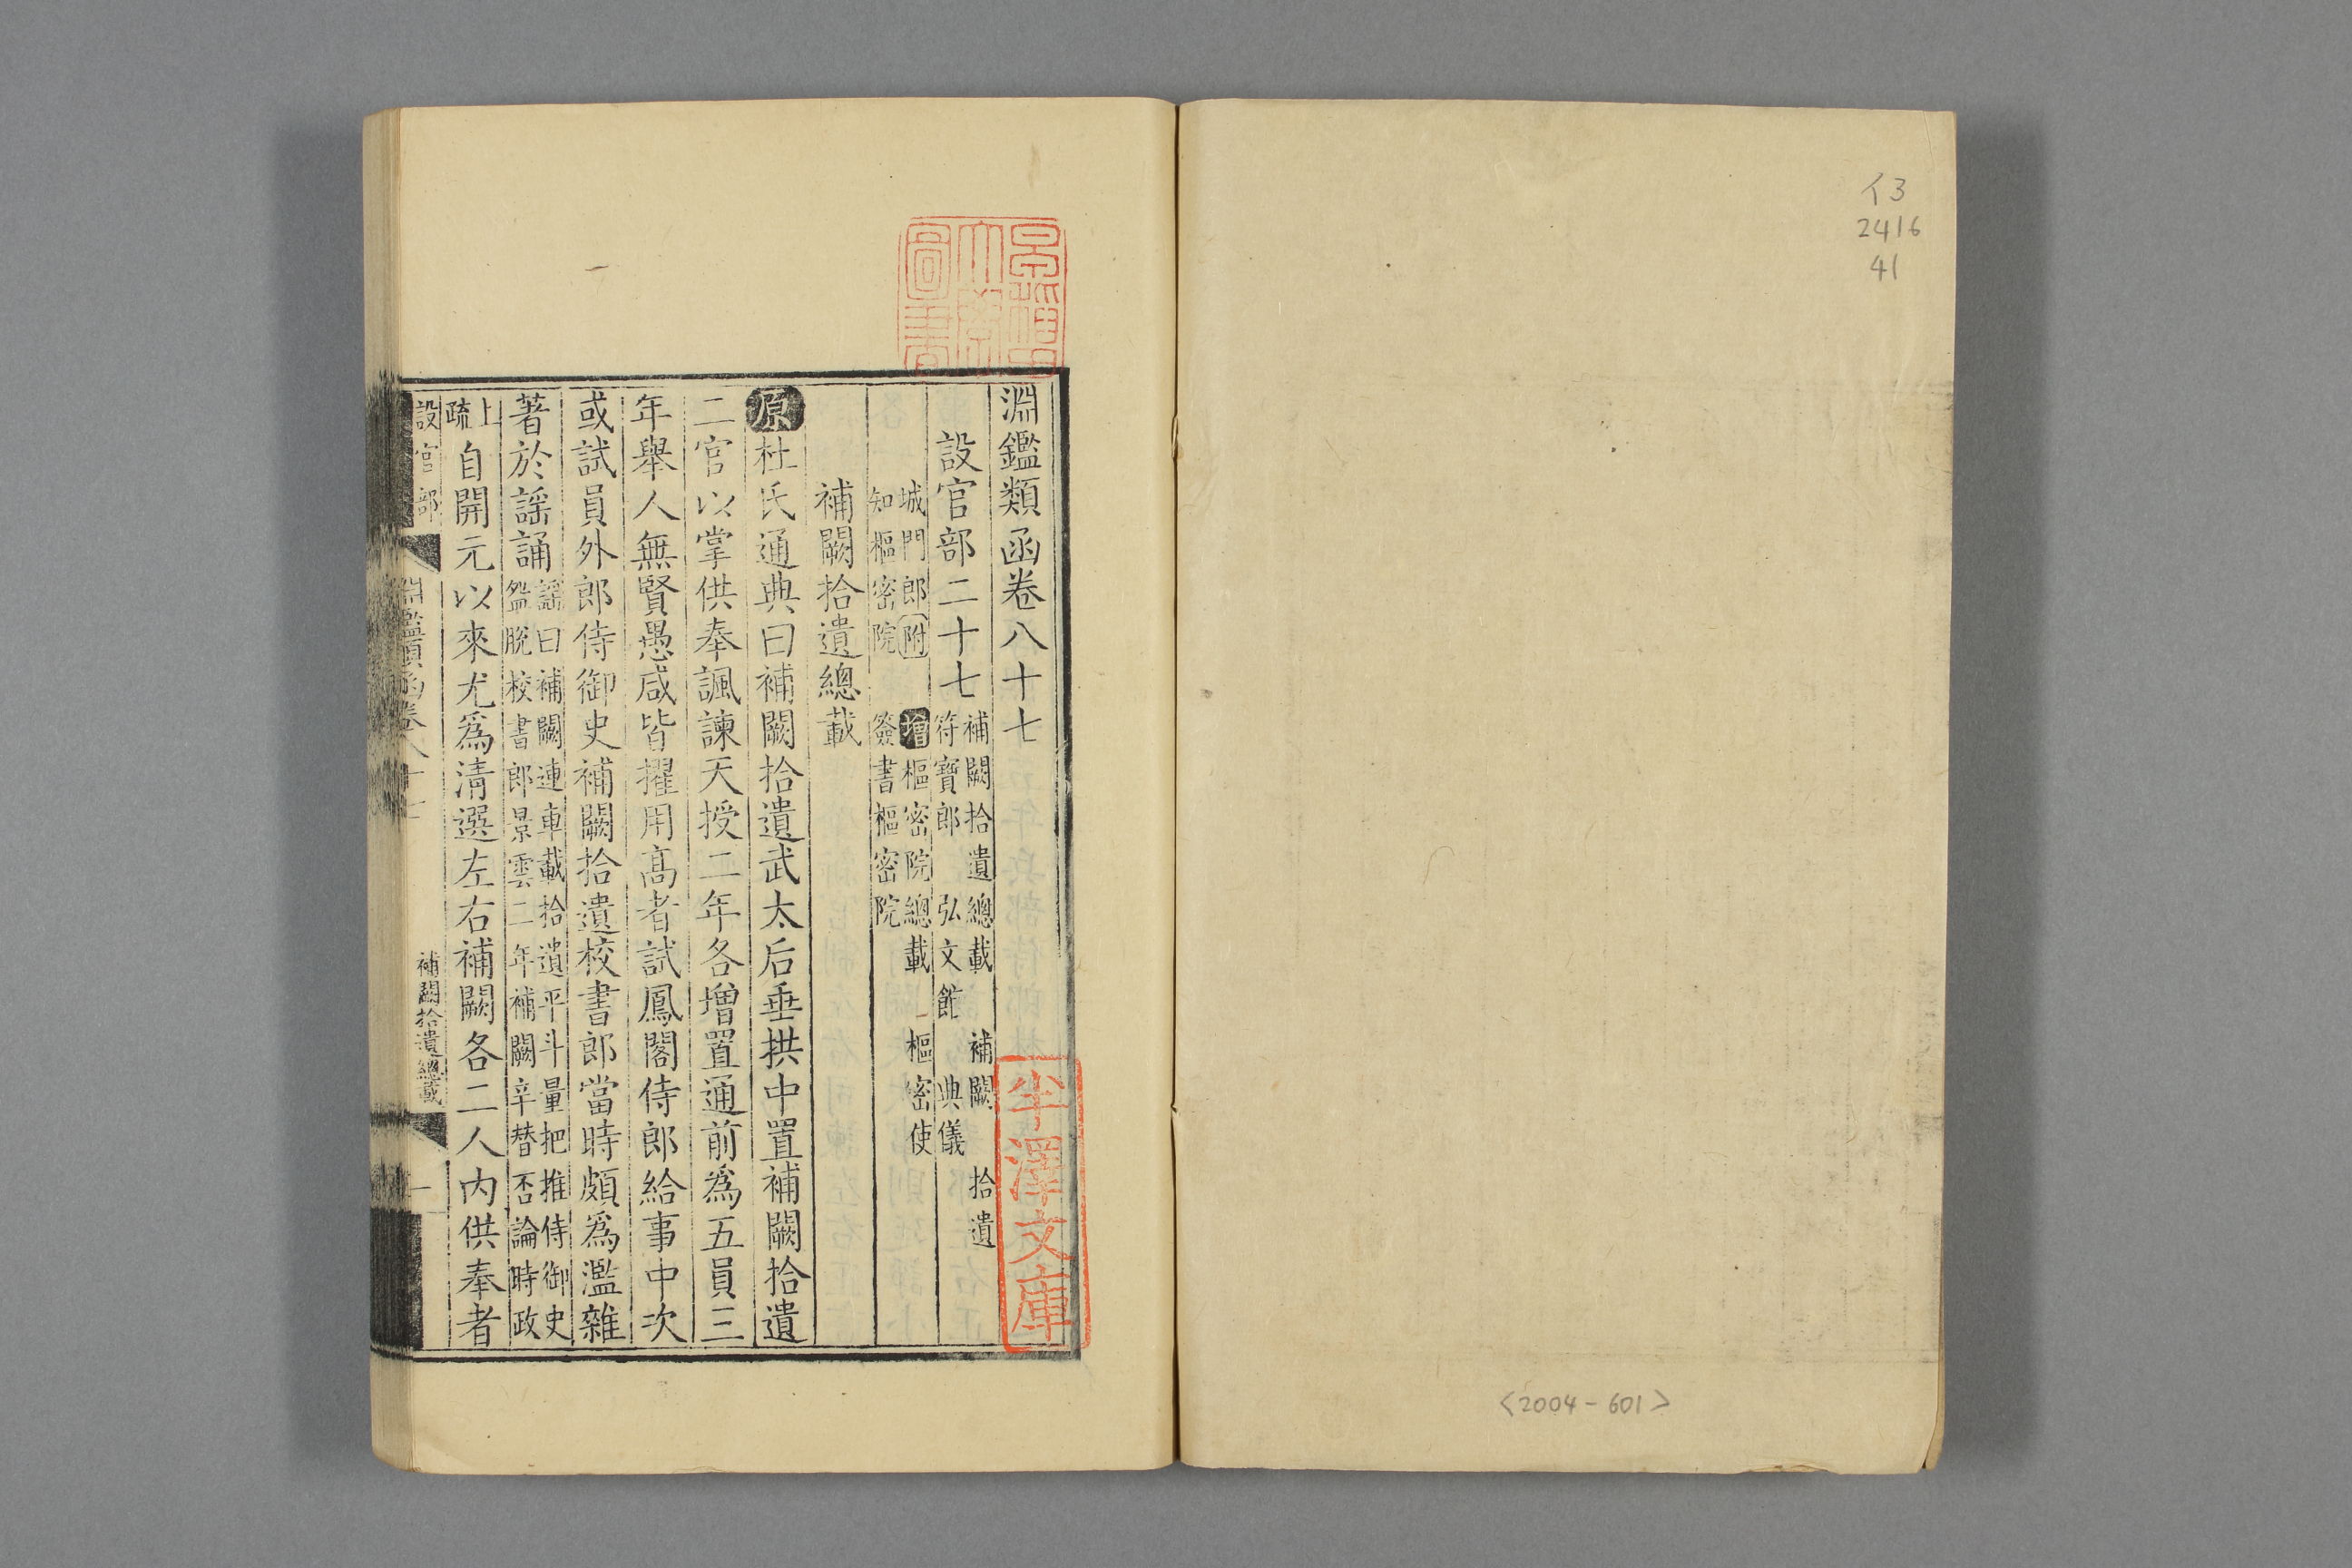 イ3
2416
41
<2004-601>
淵鑑類函卷八十七
設官部二十七
補闕拾遺總載 補闕 拾遺
符寶郎 弘文館 典儀
城門郎附 增樞密院總載 樞密使
知樞密院 簽書樞密院
補闕拾遺總載
原杜氏通典曰補闕拾遺武太后垂拱中置補闕拾遺
二官以掌供奉諷諫天授二年各增置通前爲五員三
年舉人無賢愚咸皆擢用高者試鳳閣侍郎給事中次
或試員外郎侍御史補闕拾遺校書郎當時頗爲濫雜
著於謡誦
謡曰補闕連車載拾遺平斗量把推侍御史
盌脫校書郎景雲二年補闕辛替否論時政
上
疏
自開元以來尤爲清選左右補闕各二人內供奉者
設官部
淵鑑類函卷八十七
補闕拾遺總載
一
圖書
半澤文庫